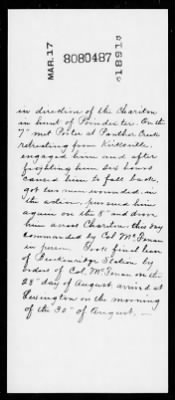 MAR.17
8080487
1891
in direction of the Chariton
in hunt of Poindexter. On the
7" met Porter at Panther Creek
retreating from Kirksville,
engaged him and after
fighting him six hours
caused him to fall back,
got two men wounded in
the action, pursued him
again on the 8" and drove
him across Chariton, this day
commanded by Col. McFerran
in person. Took final leave
of Breckenridge Station by
orders of Col. McFerran on the
28" day of August arrived at
Lexington on the morning
of the 30" of August. —